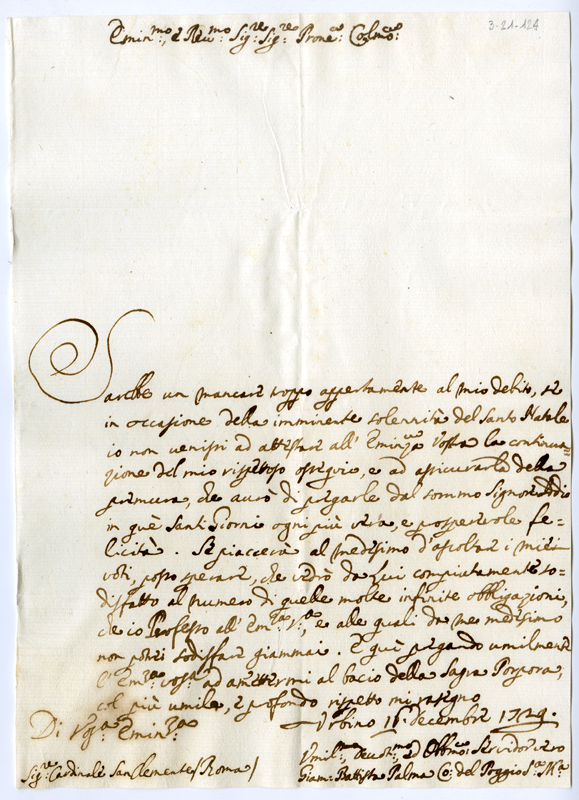 3-21-124
Emin.mo, e Rev.mo Sig.re Sig.re Prone Colmo:
Sarebbe un mancare troppo apertamente al mio debito, se
in occasione della imminente solennità del Santo Natale
io non venissi ad attestare all' Eminza Vostra la continua-
zione del mio rispettoso ossequio, e ad assicurarla della
premura, che avrò di pregarle dal sommo Signore Iddio
in quei Santi Giorni ogni più vera, e prosperevole fe-
licità. Se piacerà al medesimo d'ascoltare i miei
voti, posso sperare, che vedrò da Lui compiutamente so-
disfatto al numero di quelle molte infinite obbligazioni,
che io Professo all' Em.za V.ra, e alle quali da me medesimo
non potrei sodisfare giammai. E quì pregando umilmente
l' Em.za Vos.a ad amettermi al bacio della Sagra Porpora,
col più umile, e profondo rispetto mi rasegno
Di Vos.a Emin.za
Urbino 11 decembre 1729.
Sig.re Cardinale San Clemente /Roma/
Umil.mo Devot.mo ed Obbmo: Servidore vero
Giam: Battista Palma Co: del Poggio S.a M.a